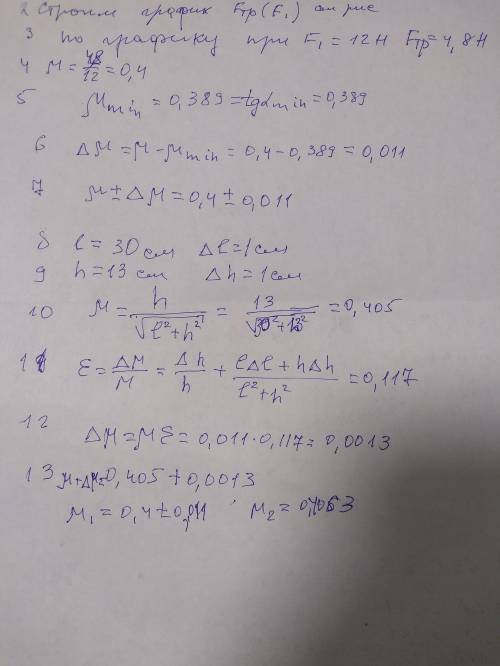 2 Строим график Fтр(F₁) см рис
3 По графику при F₁ = 12Н Fтр = 4,8Н
4 μ = 4,8/12 = 0,4
5 μmin = 0,389 = tgαmin = 0,389
6 Δμ = μ - μmin = 0,4 - 0,389 = 0,011
7 μ ± Δμ = 0,4 ± 0,011
8 l = 30 см Δl = 1 см
9 h = 13 см Δh = 1 см
10 μ = h/√(l² + h²) = 13/√(30² + 13²) = 0,405
11 ε = Δμ/μ = Δh/h + (lΔl + hΔh)/(l² + h²) = 0,117
12 Δμ = με = 0,011·0,117 = 0,0013
13 μ + Δμ = 0,405 + 0,0013
μ₁ = 0,4 ± 0,011 μ₂ =